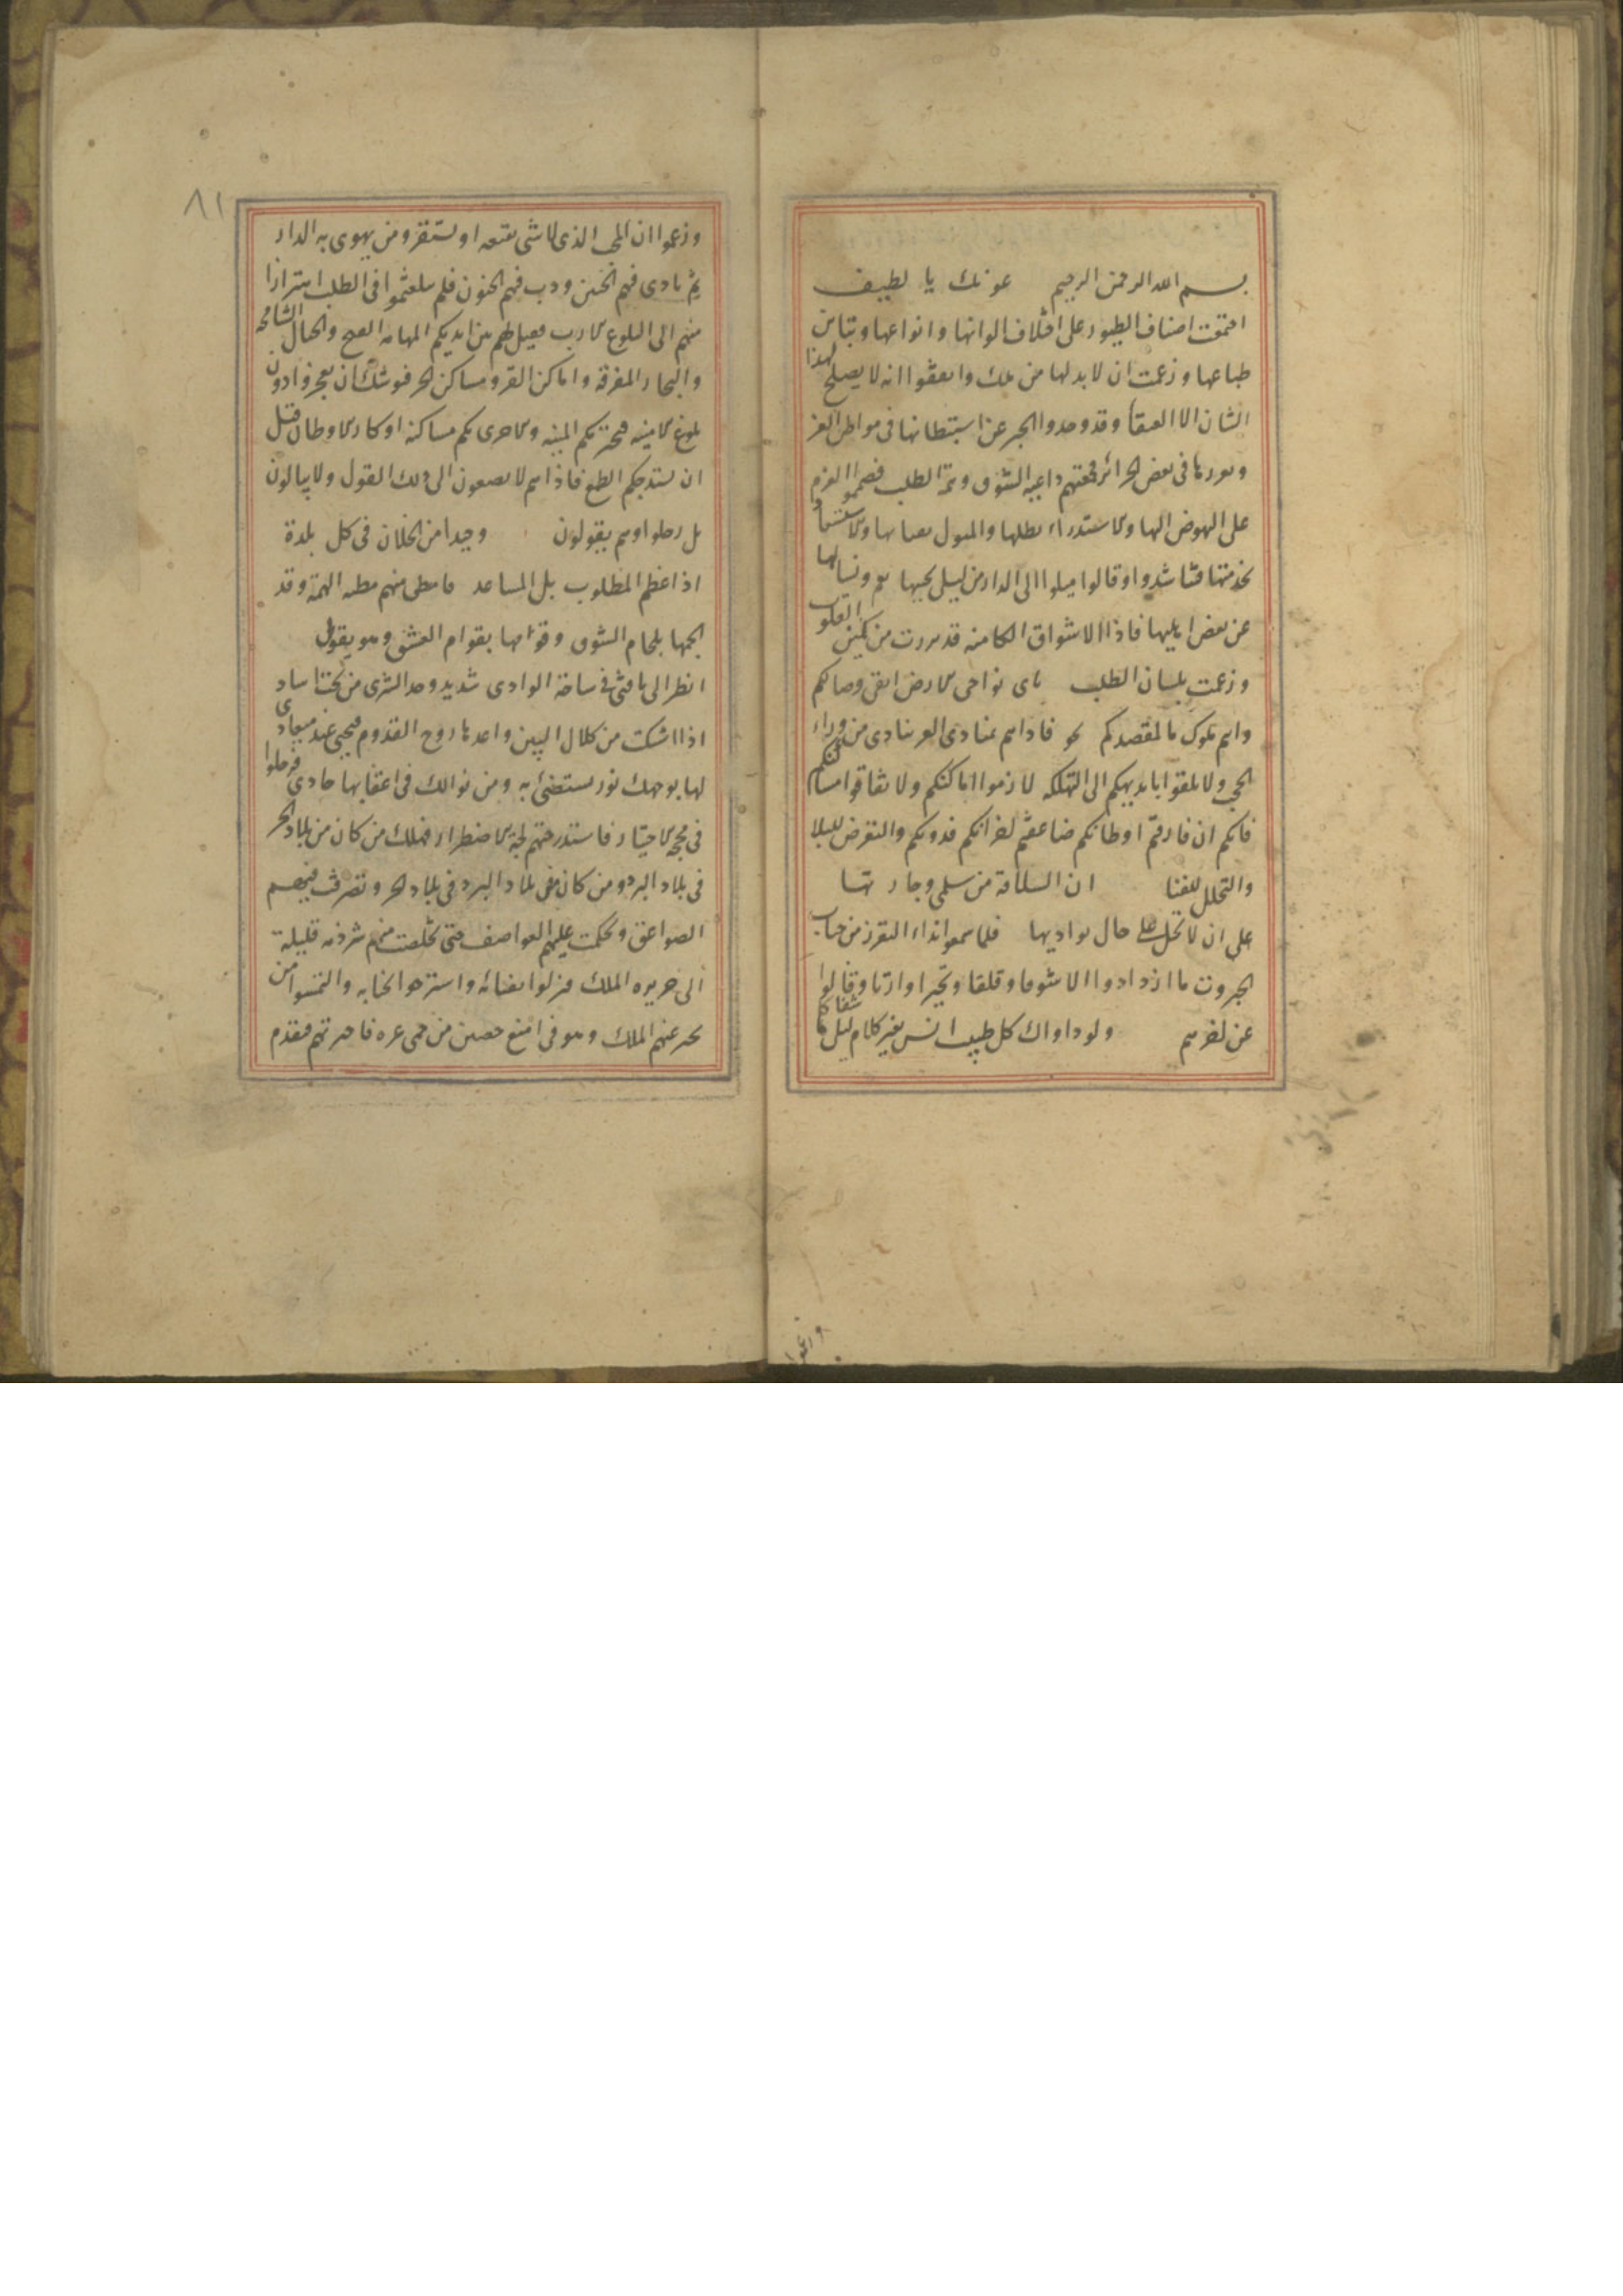 بسم الله الرحمن الرحيم عونك يا لطيف
اجتمعت اصناف الطيور على اختلاف الوانها وانواعها وتباين
طباعها وزعمت ان لا بد لها من ملك واتفقوا انه لا يصلح لهذا
الشان الا العنقا وقد وجدوا الخبر عن استيطانها فى مواطن العز
وتعززها فى بعض الجزائر فجمعتهم داعية الشوق وهمة الطلب فصمموا العزم
على النهوض اليها والاستذراء بظلها والمثول بفنائها والاستسعاد
بخدمتها فتناشدوا وقالوا ميلوا الى الدار من ليلى نحييها نعم ونسالها
عن بعض اهليها فاذا الاشواق الكامنة قد برزت من كمين القلوب
وزعمت بلسان الطلب باى نواحى الارض ابغى وصالكم
وانتم ملوك ما لمقصدكم نحو فاذا هم بمنادى الغيب ينادى من وراء
الحجب ولا تلقوا بايديكم الى التهلكة لازموا اماكنكم ولا تفارقوا مساكنكم
فانكم ان فارقتم اوطانكم ضاعفتم اشجانكم فدونكم والتعرض للبلا
والتحلل للفنا ان السلامة من سلمى وجارتها
على ان لا تحل على حال بواديها فلما سمعوا نداء التعزز من جناب
الجبروت ما ازدادوا الا شوقا وقلقا وتحيرا وارقا وقالوا
عن اخرهم ولو داواك كل طبيب انس بغير كلام ليلى ما شفاكا
وزعموا
٨١
وزعموا ان المحب الذى لا شى يقنعه او يستقر ومن يهوى به الدار
ثم نادى فيهم الحنين ودب فيهم الجنون فلم يتلعثموا فى الطلب اهتزازا
منهم الى البلوغ الارب فقيل لهم بين ايديكم المهامه الفيح والجبال الشامخة
والبحار المغرقة واماكن القر ومساكن الحر فيوشك ان تعجزوا دون
بلوغ الامنية فتخترمكم المنية والاحرى بكم مساكنة اوكار الاوطان قبل
ان يستدرجكم الطمع فاذا هم لا يصغون الى ذلك القول ولا يبالون
بل رحلوا وهم يقولون وحيدا من الخلان فى كل بلدة
اذا عظم المطلوب قل المساعد فامتطى كل منهم مطية الهمة وقد
الجمها بلجام الشوق وقومها بقوام العشق وهو يقول
انظر الى ناقتى فى ساحة الوادى شديدة بالسرى من تحت مياد
اذا اشتكت من كلال البين واعدها روح القدوم فتحيى عند ميعاد
لها بوجهك نور تستضئ به ومن نوالك فى اعقابها حادى فرحلوا
فى محجة الاختيار فاستدرجتهم لجة الاضطرار فهلك من كان من بلاد الحر
فى بلاد البرد ومن كان من بلاد البرد فى بلاد الحر وتصرفت فيهم
الصواعق وتحكمت عليهم العواصف حتى تخلصت منهم شرذمة قليلة
الى جزيرة الملك فنزلوا بفنائه واستذروا بجنابه والتمسوا من
يخبر عنهم الملك وهو فى امنع حصن من حمى عزه فاخبر بهم فتقدم